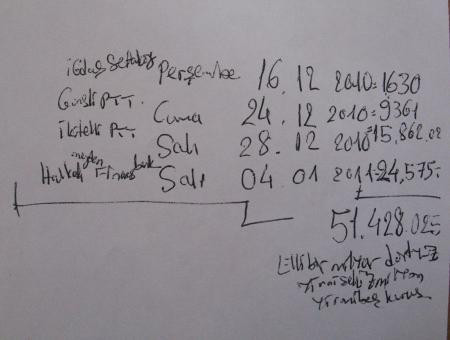 Perşembe 16.12 2010=1630
Güneşli PTT. Cuma 24.12 2010=9361
İkitelli PTT Salı 28.12 2010=15,862.02
Halkalı Finans bank Salı 04 01 2011=24,575-
51.428.025
Ellibir milyar dörtyüz
yirmisekiz milyon
yirmibeş kuruş